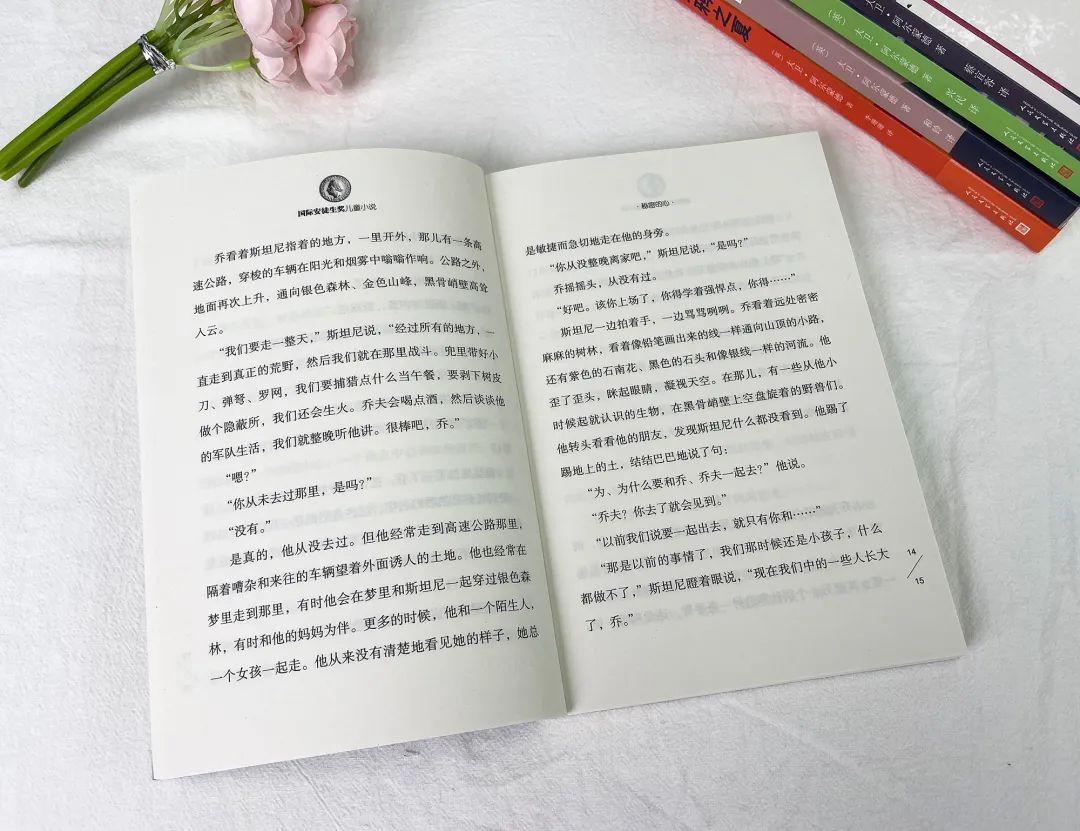 之夏
（英）大卫·阿尔蒙德 著
（英）大卫·阿尔蒙德 著
兴民 译
大卫·阿尔蒙德 著
蔡宜容 译
国际安徒生奖儿童小说
乔看着斯坦尼指着的地方，一里开外，那儿有一条高
速公路，穿梭的车辆在阳光和烟雾中嗡嗡作响。公路之外，
地面再次上升，通向银色森林、金色山峰，黑骨峭壁高耸
入云。
“我们要走一整天，”斯坦尼说，“经过所有的地方，一
直走到真正的荒野，然后我们就在那里战斗。兜里带好小
刀、弹弩、罗网，我们要捕猎点什么当午餐，要剥下树皮
做个隐蔽所，我们还会生火。乔夫会喝点酒，然后谈谈他
的军队生活，我们就整晚听他讲。很棒吧，乔。”
“嗯？”
“你从未去过那里，是吗？”
“没有。”
是真的，他从没去过。但他经常走到高速公路那里，
隔着嘈杂和来往的车辆望着外面诱人的土地。他也经常在
梦里走到那里，有时他会在梦里和斯坦尼一起穿过银色森
林，有时和他的妈妈为伴。更多的时候，他和一个陌生人，
一个女孩一起走。他从来没有清楚地看见她的样子，她总
·秘密的心·
是敏捷而急切地走在他的身旁。
“你从没整晚离家吧，”斯坦尼说，“是吗？”
乔摇摇头，从没有过。
“好吧。该你上场了，你得学着强悍点，你得……”
斯坦尼一边拍着手，一边骂骂咧咧。乔看着远处密密
麻麻的树林，看着像铅笔画出来的线一样通向山顶的小路，
还有紫色的石南花、黑色的石头和像银线一样的河流。他
歪了歪头，眯起眼睛，凝视天空。在那儿，有一些从他小
时候起就认识的生物，在黑骨峭壁上空盘旋着的野兽们。
他转头看看他的朋友，发现斯坦尼什么都没看到。他踢了
踢地上的土，结结巴巴地说了句：
“为、为什么要和乔、乔夫一起去？”他说。
“乔夫？你去了就会见到。”
“以前我们说要一起出去，就只有你和……”
“那是以前的事情了，我们那时候还是小孩子，什么
都做不了，”斯坦尼瞪着眼说，“现在我们中的一些人长大
了，乔。”
14
15